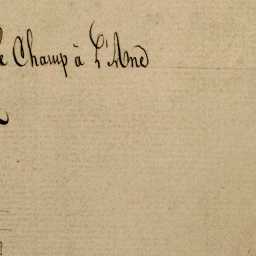 Champ à L'Ane